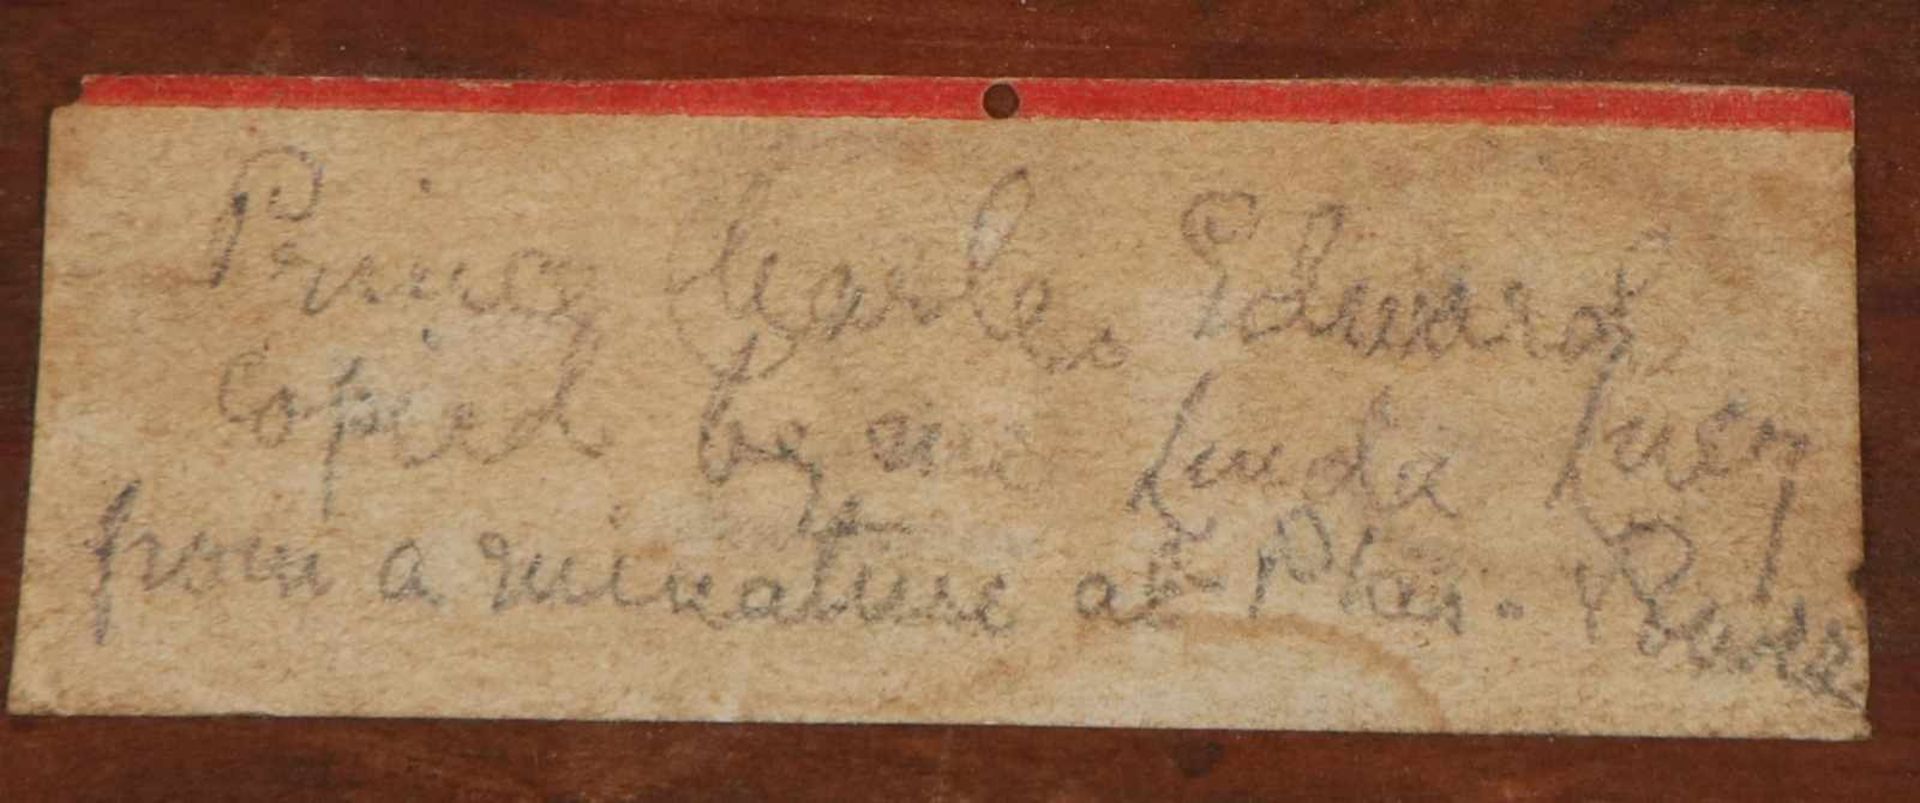 Prince Charles Edward,
Copied by me Linda
from a minature at Plas